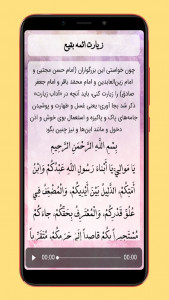 زیارت ائمه بقیع
چون خواستی این بزرگواران (امام حسن مجتبی و
امام زین‌العابدین و امام محمد باقر و امام جعفر
صادق) را زیارت کنی، باید آنچه در «آداب زیارت»
ذکر شد بجا آوری؛ یعنی غسل و طهارت و پوشیدن
جامه‌های پاک و پاکیزه و استعمال بوی خوش و اذن
دخول و مانند این‌ها و نیز چنین بگو:
بِسْمِ اللَّهِ الرَّحْمَنِ الرَّحِیمِ
یَا مَوَالِیَّ یَا أَبْنَاءَ رَسُولِ اللَّهِ عَبْدُکُمْ وَابْنُ
أَمَتِکُمْ، الذَّلِیلُ بَیْنَ أَیْدِیکُمْ، وَالْمُضْعِفُ فِی
عُلُوِّ قَدْرِکُمْ، وَالْمُعْتَرِفُ بِحَقِّکُمْ، جَاءَکُمْ
مُسْتَجِیراً بِکُمْ قَاصِداً إِلَى حَرَمِکُمْ، مُتَقَرِّباً
00:00 00:00